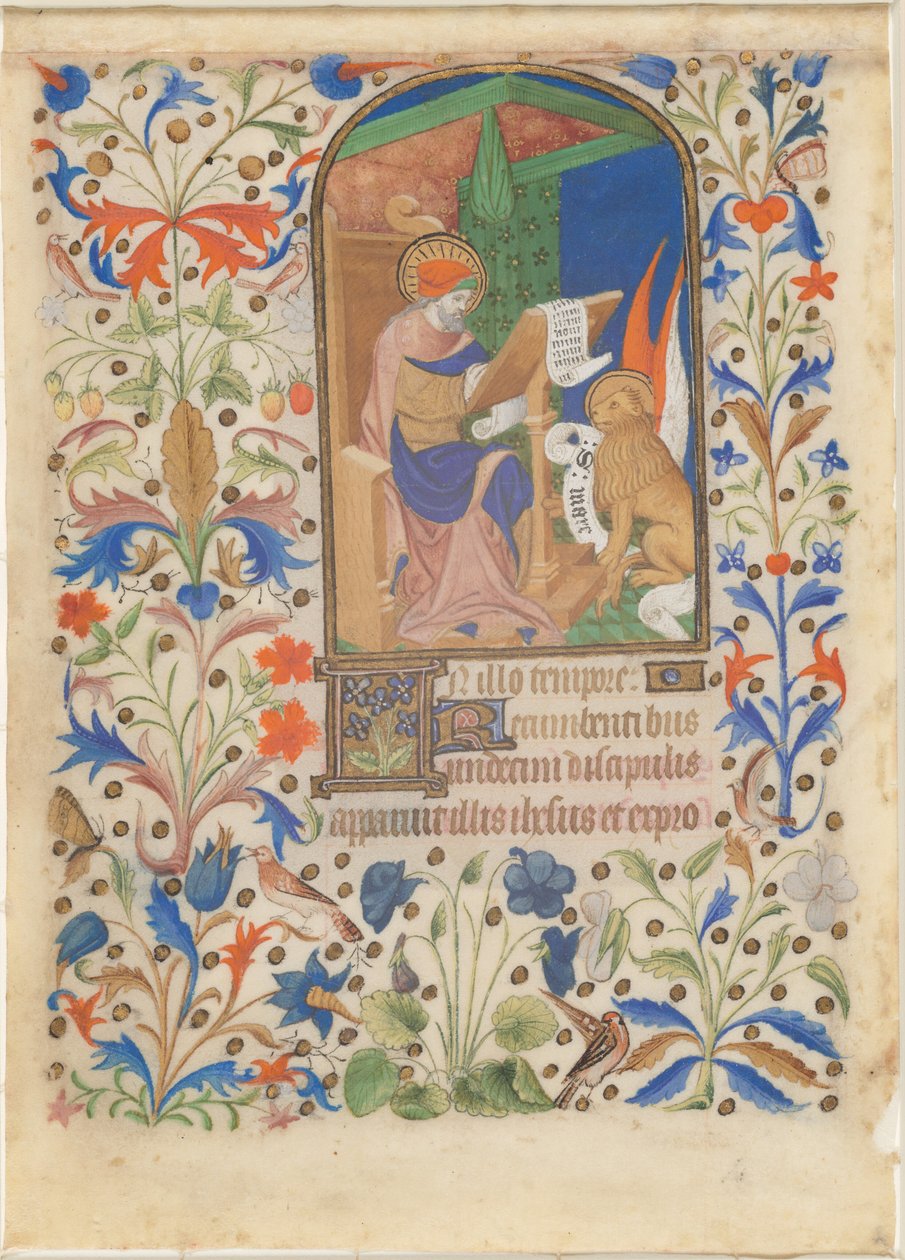 S. marc
In illo tempore:
Recumbentibus
undecim discipulis
apparuit illis ihesus et expro